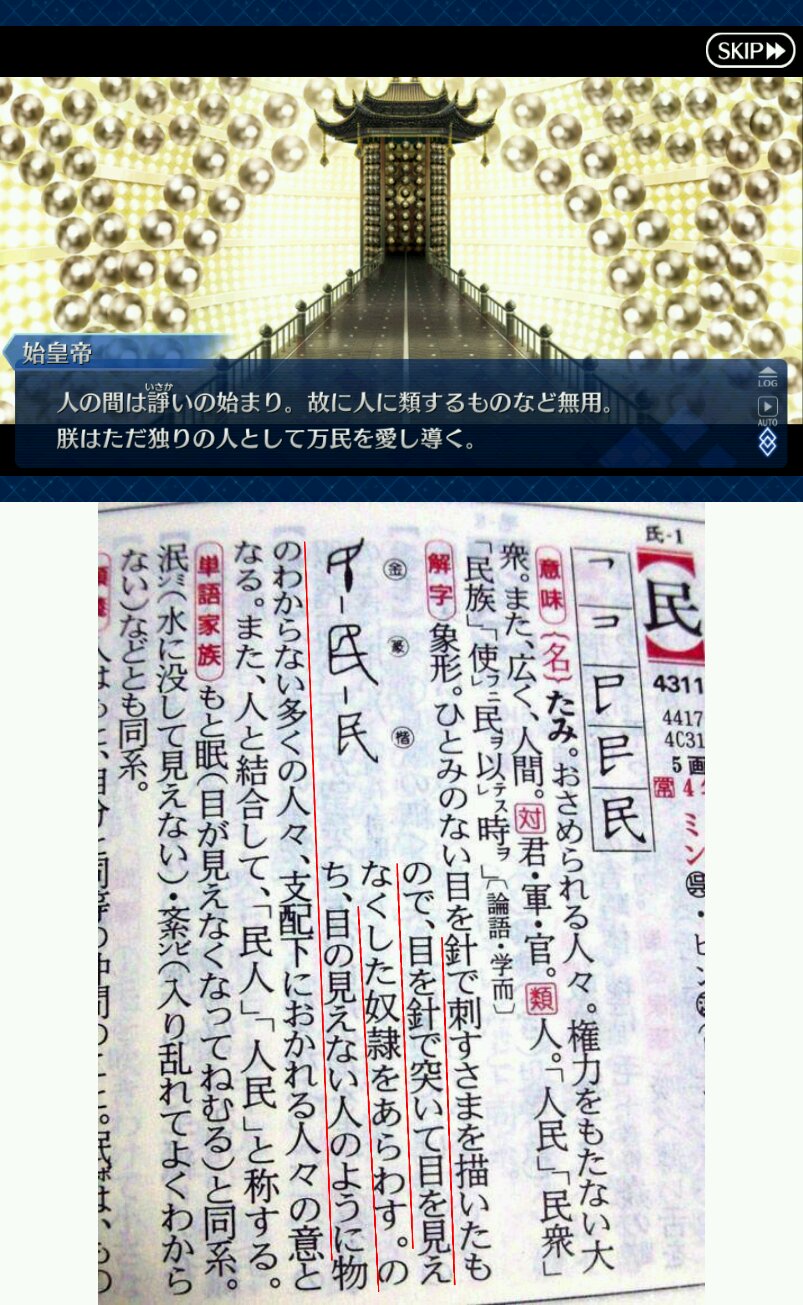 SKIP
始皇帝
いさか
人の間は諍いの始まり。故に人に類するものなど無用。
朕はただ独りの人として万民を愛し導く。
LOG
AUTO
氏-1
【民】
4311
4417
4C31
5画
常4
ミン
呉・ヒン
意味 {名}たみ。おさめられる人々。権力をもたない大
衆。また、広く、人間。対君・軍・官。類人。「人民」「民衆」
「民族」「使ニフ民ヲ以レテス時ヲ」〔論語・学而〕
解字 象形。ひとみのない目を針で刺すさまを描いたも
ので、目を針で突いて目を見え
なくした奴隷をあらわす。の
ち、目の見えない人のように物
金
篆
楷
民
のわからない多くの人々、支配下におかれる人々の意と
なる。また、人と結合して、「民人」「人民」と称する。
単語家族 もと眠(目が見えなくなってねむる)と同系。
泯ミン(水に没して見えない)・紊ビン(入り乱れてよくわから
ない)などとも同系。